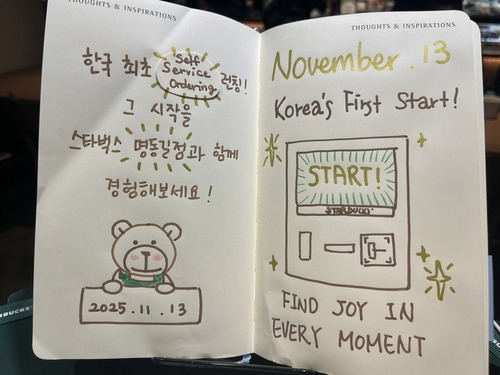 THOUGHTS & INSPIRATIONS
한국 최초 Self Service Ordering 런칭!
그 시작을
스타벅스 명동길점과 함께
경험해보세요!
2025.11.13
THOUGHTS & INSPIRATIONS
November. 13
Korea's First Start!
START!
STARBUCKS
FIND JOY IN
EVERY MOMENT